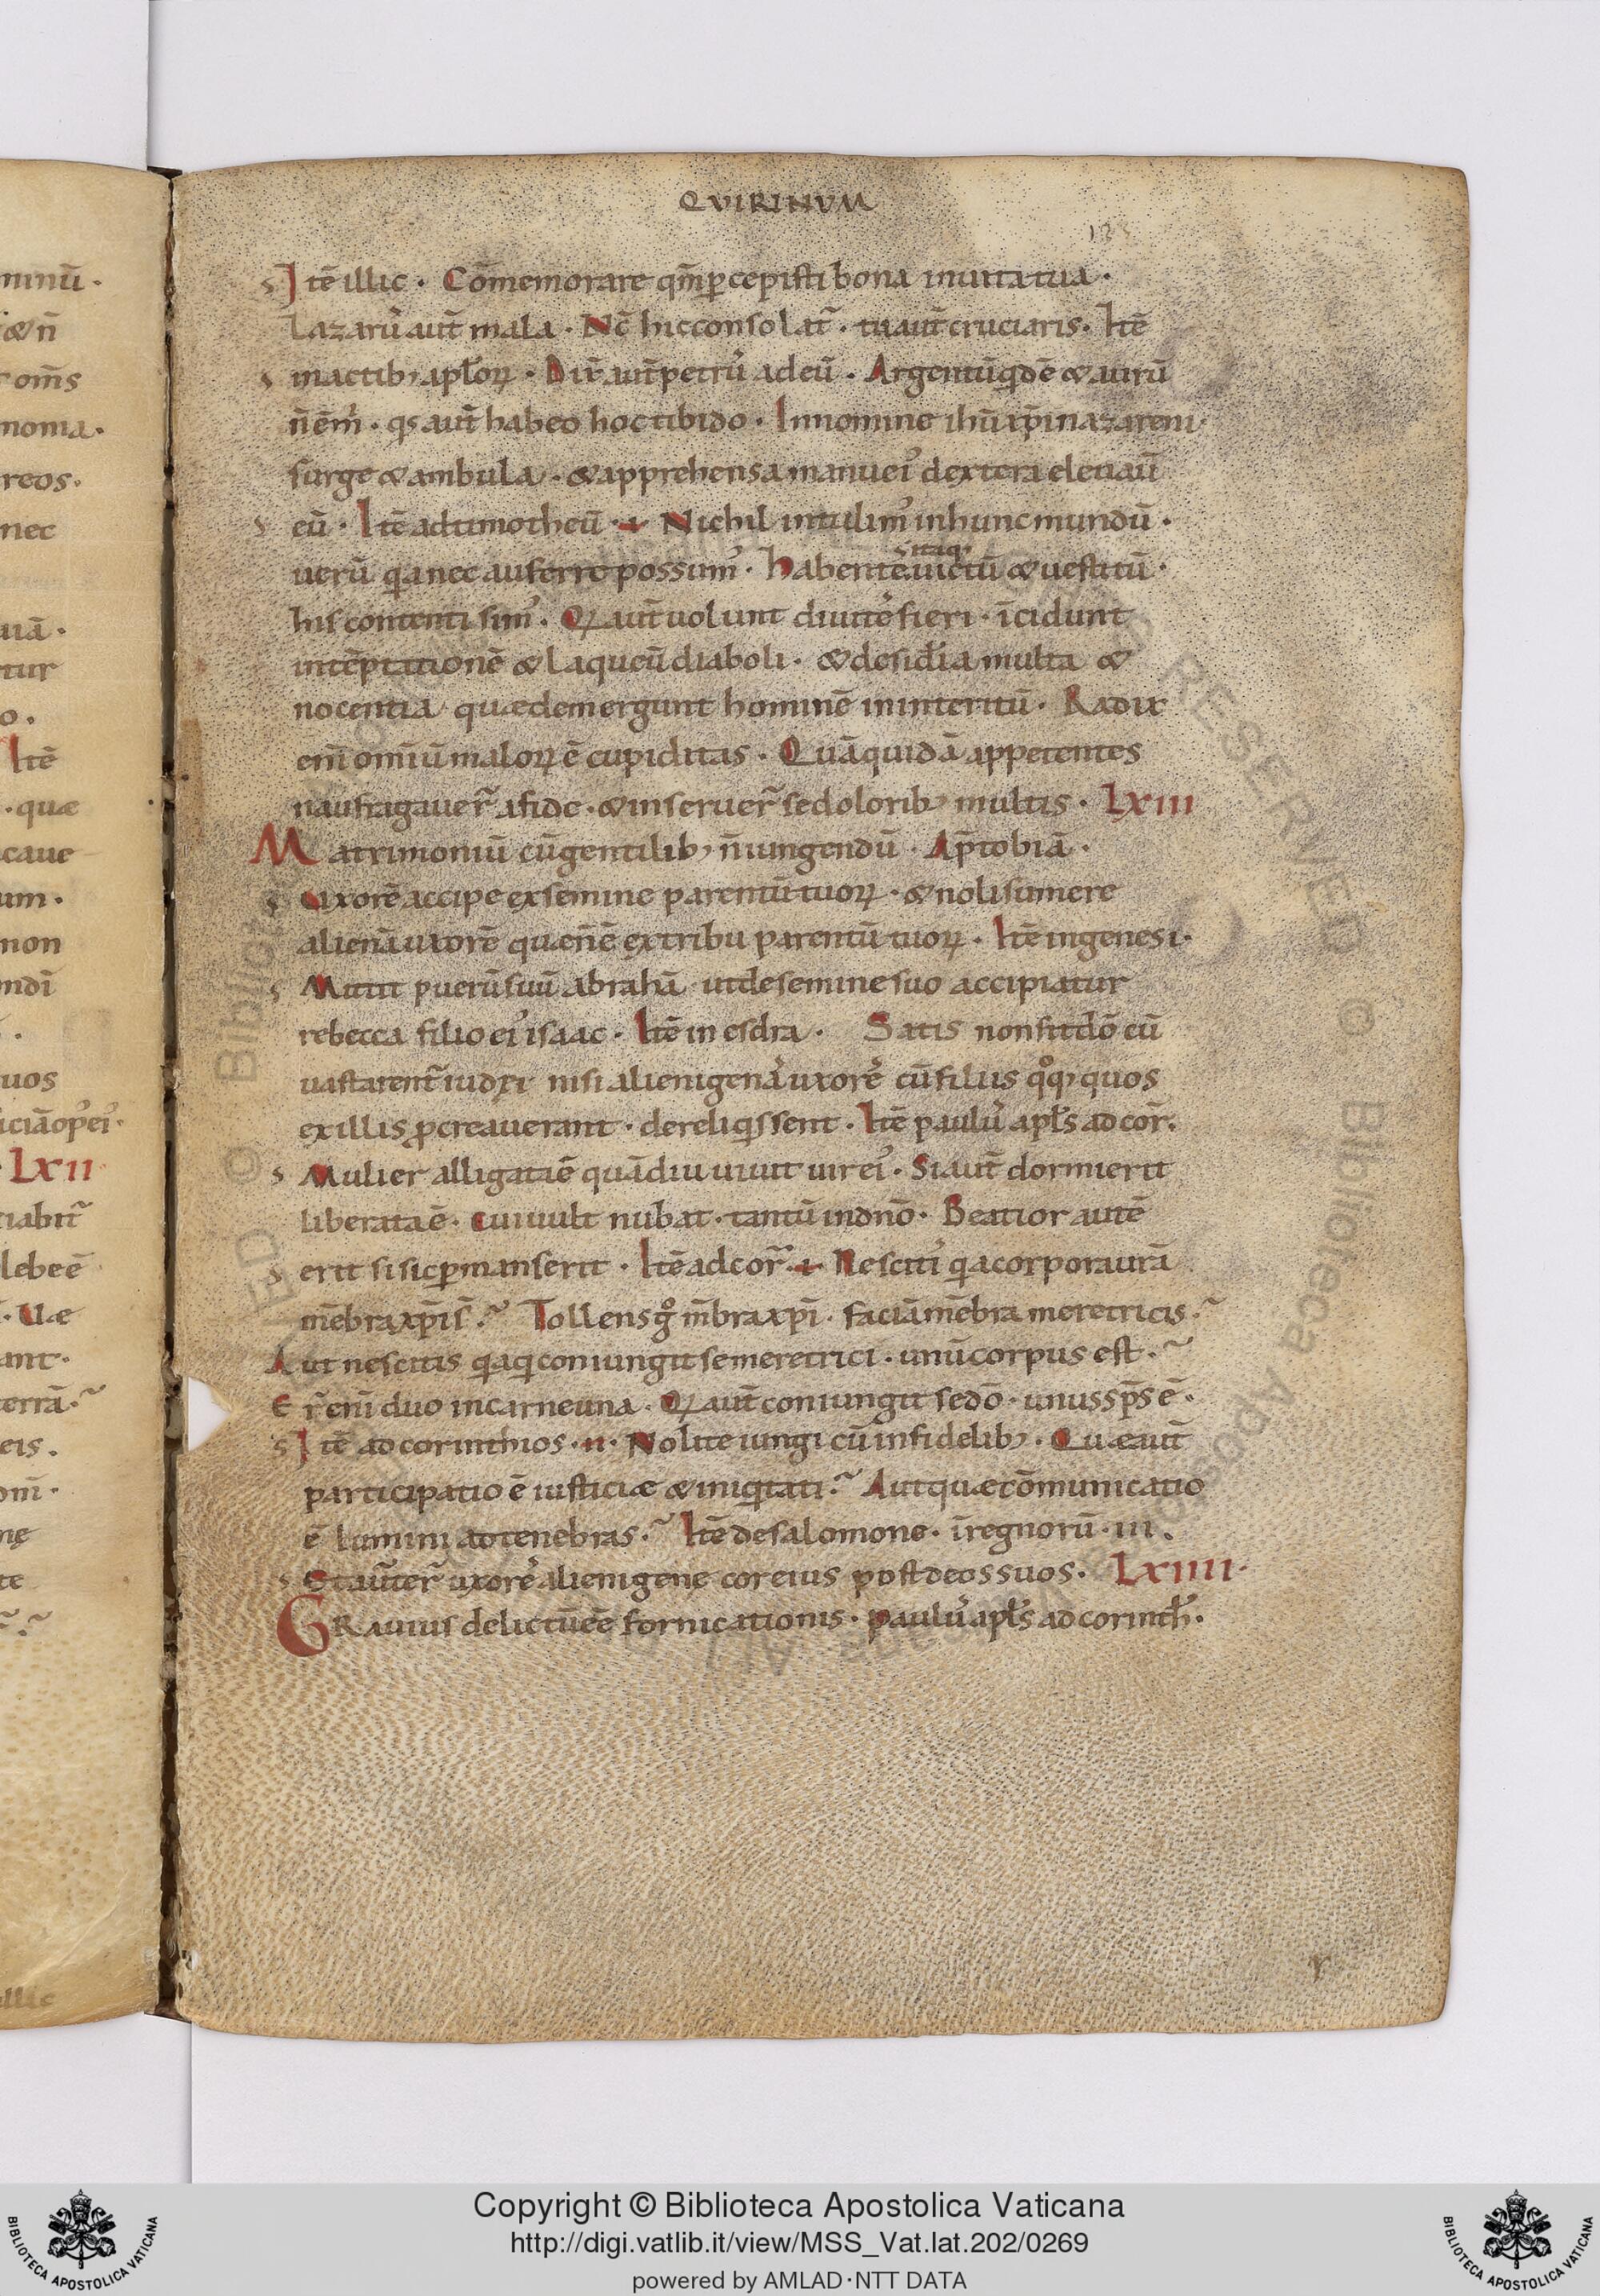 QVIRINVM
Itē illic · Cōmemorare qm̄ p̄cepisti bona inuita tua ·
Lazaru᾽ aut̄ mala · Nc̄ hic consolat᷑ · tu aut̄ cruciaris · Itē
in actib; apl̄oꝝ · Dix̄ aut̄ petru᾽ ad eū · Argentū qͥdē & aurū
n̄ ē m̄ · qd aut̄ habeo hoc tibi do · In nomine ihū xp̄i nazareni ·
surge & ambula · & apprehensa manu ei᾽ dextera eleuau̅
eū · Itē ad timotheū · I · Nichil intulim᾽ in hunc mundū ·
uerū qͥa nec auferre possum᾽ · Habente itaq; uictū & uestitū ·
his contenti sim᾽ · Qꝫ aut̄ uolunt diuite᾽ fieri · īcidunt
in tēptationē & laqueū diaboli · & desid̄ia multa &
nocentia quæ demergunt hominē in interitū · Radix
eni̅ omīū maloꝝ ē cupiditas · Quā quidā appetentes
naufragauer᷑ a fide · & inseruer᷑ se dolorib; multis · LXIII
Matrimoniū cū gentilib; n̄ iungendū · Ap̄ tobiā ·
Uxorē accipe ex semine parentū tuoꝝ · & noli sumere
alienā uxorē quæ n̄ ē ex tribu parentū tuoꝝ · Itē in genesi ·
Mittit puerū suū abrahā ut de semine suo accipiatur
rebecca filio ei᾽ isaac · Itē in esdra · Satis non fit dō cū
uastarent᷑ iudæi nisi alienigena᾽ uxore᾽ cū filiis qͦq; quos
ex illis p̄creauerant · dereliqͥssent · Itē paulu᾽ apl̄s ad cor̄ ·
Mulier alligata ē quādiu uiuit uir ei᾽ · Si aut̄ dormierit
liberata ē · cui uult nubat · tantū in dn̄o · Beatior autē
erit si sic p̄manserit · Itē ad cor᷑ · I · Nesciti᾽ qͥa corpora urā
mēbra xp̄i s̄ · ? Tollens gͦ m̄bra xp̄i · faciā mēbra meretricis · ?
Aut nescitis qͥa qͥ coniungit se meretrici · unū corpus est · ?
Er̄ eni̅ duo in carne una · Qꝫ aut̄ coniungit se dō · unus sp̄s ē ·
Itē ad corinthios · II · Nolite iungi cū infidelib; · Quæ aut̄
participatio ē iusticiæ & iniqͥtati · ? Aut quæ cōmunicatio
ē lumini ad tenebras · ? Itē de salomone · ī regnorū · III ·
Et auter᷑ uxore᾽ alienigene cor eius post deos suos · LXIIII ·
GRauius delictū eē fornicationis · paulu᾽ apl̄s ad corinth̄ ·
r
Copyright © Biblioteca Apostolica Vaticana
http://digi.vatlib.it/view/MSS_Vat.lat.202/0269
powered by AMLAD·NTT DATA
BIBLIOTECA APOSTOLICA VATICANA
BIBLIOTECA APOSTOLICA VATICANA